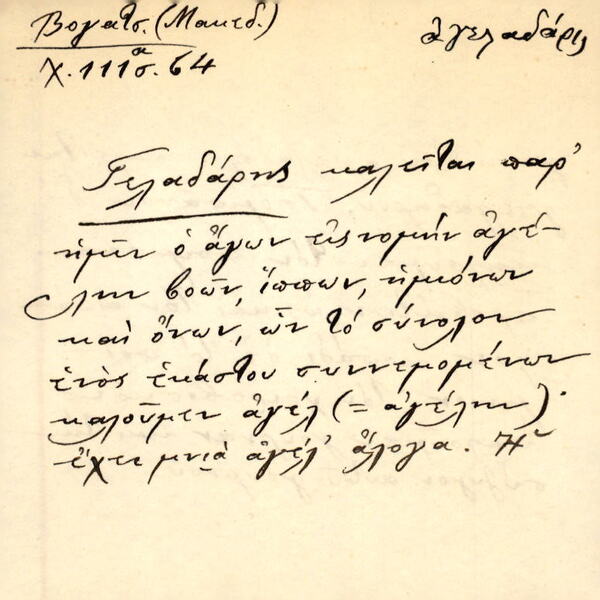 Βογατσ. (Μακεδ.) ἀγελαδάρις
χ. 111α σ. 64
Γελαδάρης καλεῖται παρ'
ἡμῖν ὁ ἄγων εἰς νομὴν ἀγέ-
λην βοῶν, ἵππων, ἡμιόνων
καὶ ὄνων, ὧν τὸ σύνολον
ἑνὸς ἑκάστου συννεμομένων
καλοῦμεν ἀγέλ (= ἀγέλην)·
ἔχει μνιὰ ἀγέλ' ἄλογα. Ἡ